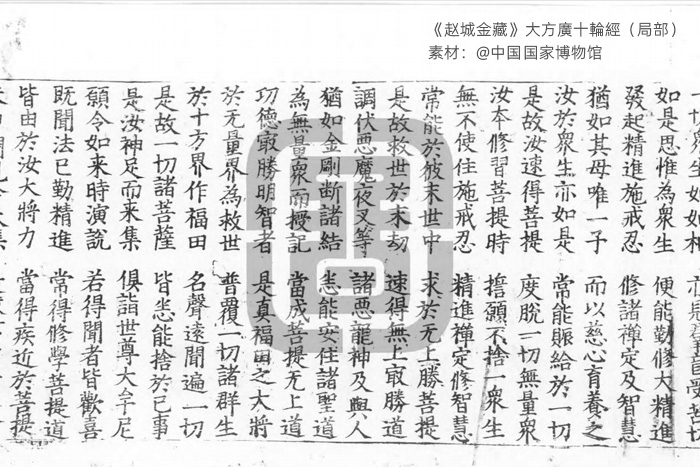 《赵城金藏》大方廣十輪經（局部）
素材：@中国国家博物馆
如是思惟為衆生 便能勤修大精進
發起精進施戒忍 修諸禪定及智慧
猶如其母唯一子 而以慈心育養之
汝於衆生亦如是 常能賑給於一切
是故汝速得菩提 度脫一切無量衆
汝本修習菩提時 擔願不捨一衆生
無不使住施戒忍 精進禪定修智慧
常能於彼末世中 求於无上勝菩提
是故救世於末劫 速得無上㝡勝道
調伏悪魔夜叉等 諸悪龍神及與人
猶如金剛斷諸結 悉能安住諸聖道
為無量衆而授記 當成菩提无上道
功德㝡勝明智者 是真福田之大將
於无量界為救世 普覆一切諸群生
於十方界作福田 名聲遠聞遍一切
是故一切諸菩薩 皆悉能捨於己事
是汝神足而来集 俱詣世尊大牟尼
願令如来時演說 若得聞者皆歡喜
既聞法已勤精進 常得修學菩提道
皆由於汝大將力 當得疾近於菩提